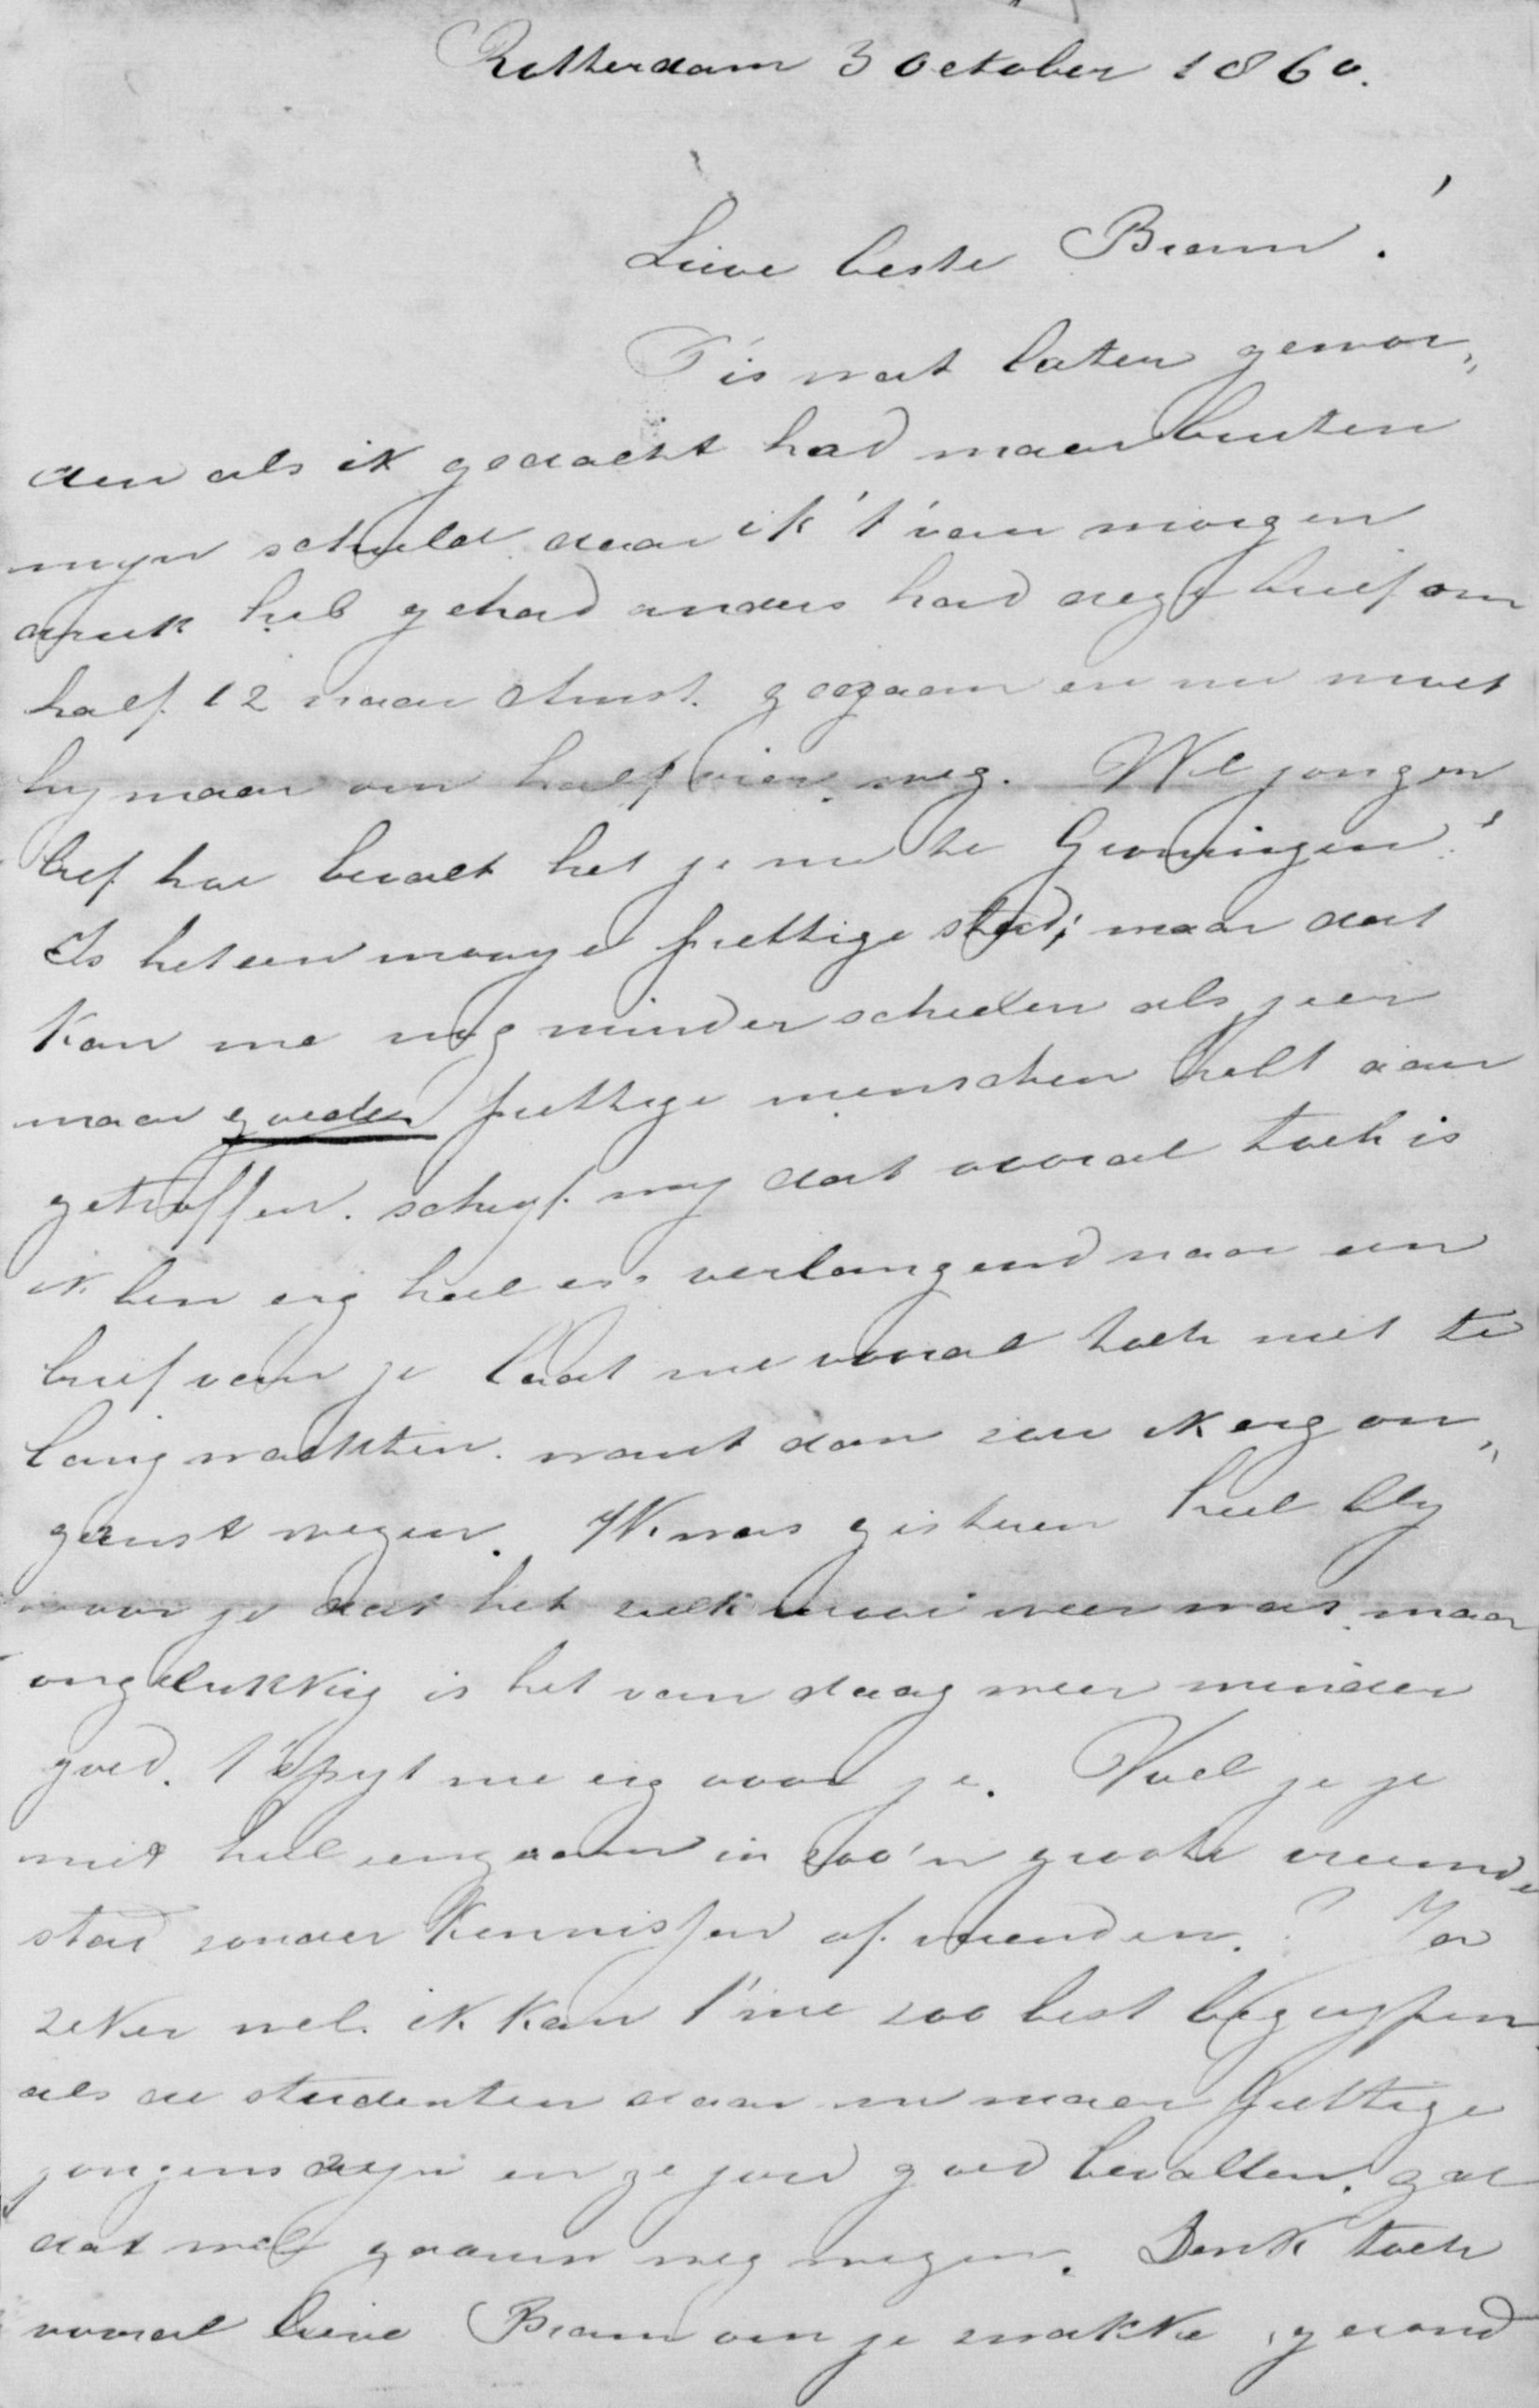 Rotterdam 3 October 1860.
Lieve beste Bram!
T'is wat later gewor„
den als ik gedacht had maar buiten
myn schuld daar ik 't van morgen
druk heb gehad anders had deze brief om
half 12 naar Amst. gegaan en nu moet
hy maar om half vier weg. Wel jongen
lief hoe bevalt het je nu te Groningen?
Is het een mooye prettige stad; maar dat
kan me nog minder schelen als je er
maar goeden prettige menschen hebt aan
getroffen. schryf my dat vooral toch is
ik ben erg heel erg verlangend naar een
brief van je laat me vooral toch niet te
lang wachten. want dan zou ik erg on„
gerust wezen. Ik was gisteren heel bly
voor je dat het zulk mooi weer was. maar
ongelukkig is het van daag weer minder
goed. 't spyt me erg voor je. Voel je je
niet heel eengaam in zoo'n groote vreemde
stad zonder kennissen of vrienden.? Ja
zeker wel. ik kan 't me zoo best begrypen
als de studenten daar nu maar prettige
jongens zyn en ze jou goed bevallen. zal
dat wel gaauw weg wezen. Denk toch
vooral lieve Bram om je zwakke gezond